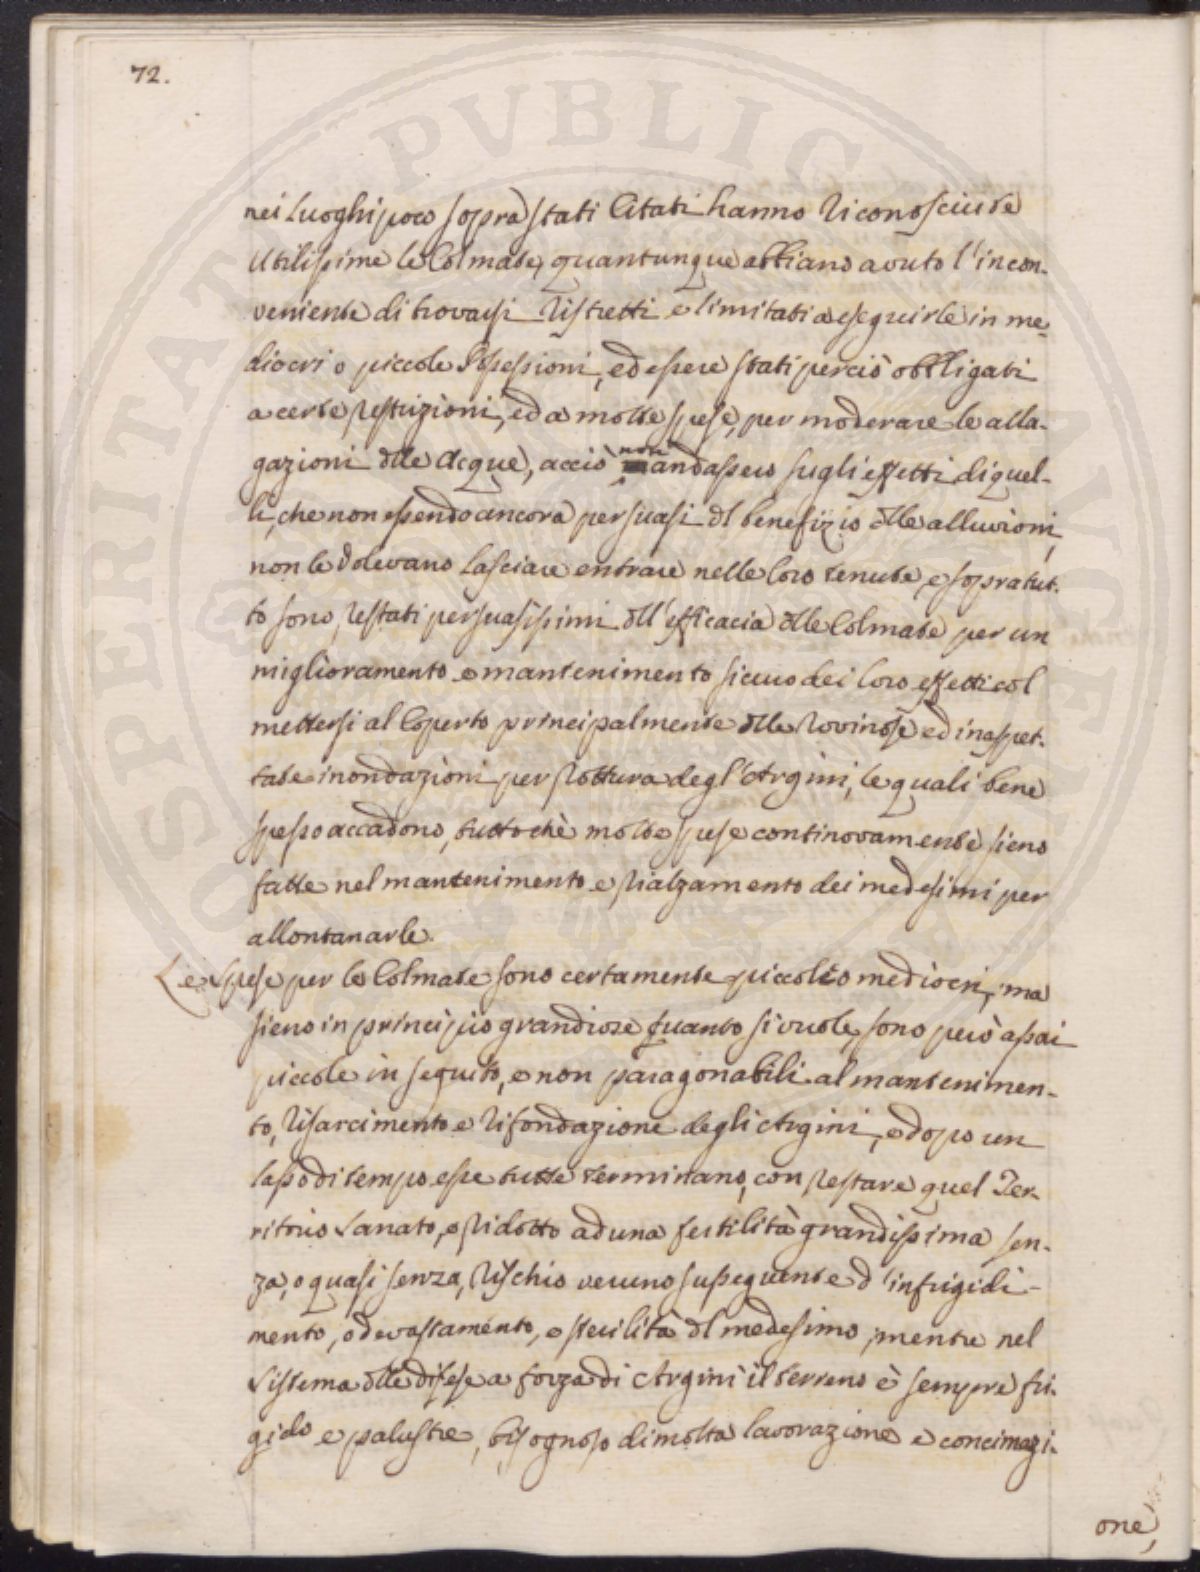 72.
nei Luoghi poco sopra stati Citati hanno riconosciute
utilissime le Colmate, quantunque abbiano avuto l'incon-
veniente di trovarsi ristretti e limitati a eseguirle in me-
diocri o piccole Possessioni, ed essere stati perciò obbligati
a certe restrizioni, ed a molte spese, per moderare le alla-
gazioni dlle Acque, acciò non andassero sugli effetti di quel-
li, che non essendo ancora persuasi dl benefizio dlle alluvioni,
non le volevano lasciare entrare nelle loro tenute, e sopratut-
to sono restati persuasissimi dll'efficacia dlle Colmate per un
miglioramento e mantenimento sicuro dei loro effetti col
mettersi al Coperto principalmente dlle rovinose ed inaspet-
tate inondazioni per rottura degl'Argini, le quali bene
spesso accadono, tuttochè molte spese continovamente sieno
fatte nel mantenimento e rialzamento dei medesimi per
allontanarle.
Le Spese per le Colmate sono certamente piccole o mediocri, ma
sieno in principio grandiose quanto si vuole, sono però assai
piccole in seguito, e non paragonabili al mantenimen-
to, risarcimento e rifondazione degli Argini, e dopo un
lasso di tempo esse tutte terminano, con restare quel Ter-
ritorio Sanato, e ridotto ad una fertilità grandissima sen-
za, o quasi senza, rischio veruno susseguente d'infrigidi-
mento, o devastamento, o sterilità dl medesimo, mentre nel
Sistema dlle difese a forza di Argini il terreno è sempre fri-
gido e palustre, bisognoso di molta lavorazione e concimazi-
one,